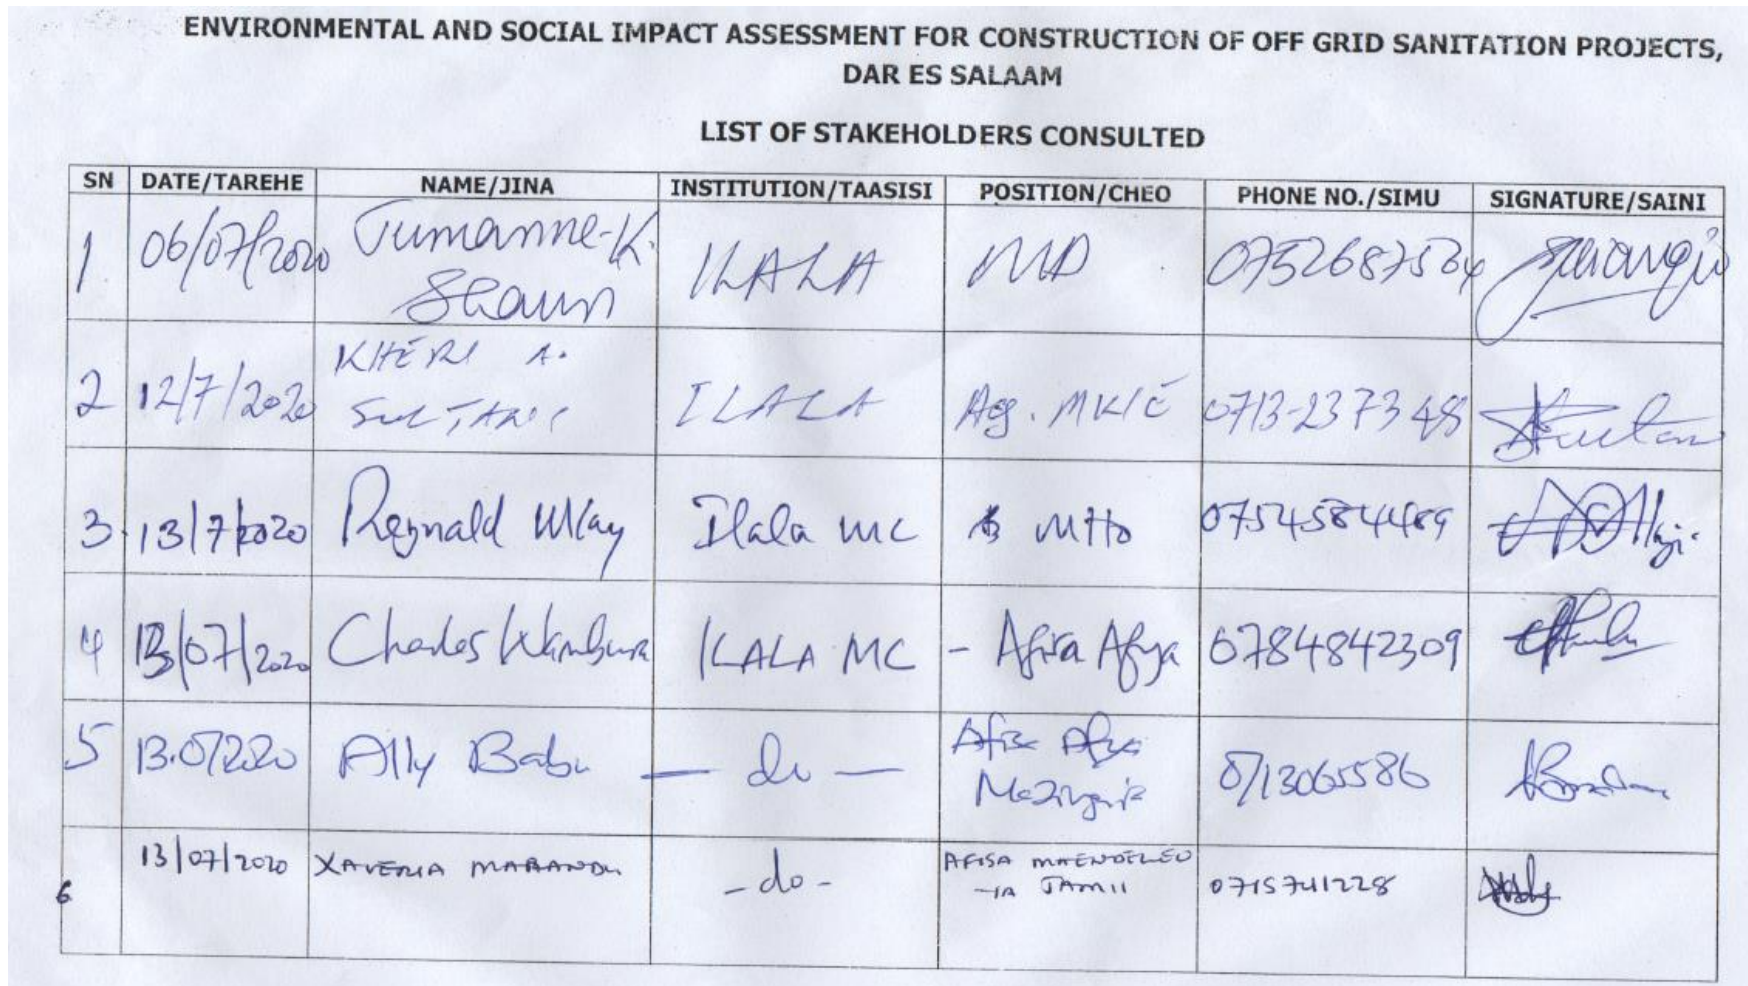 ENVIRONMENTAL AND SOCIAL IMPACT ASSESSMENT FOR CONSTRUCTION OF OFF GRID SANITATION PROJECTS,
DAR ES SALAAM
LIST OF STAKEHOLDERS CONSULTED
SN DATE/TAREHE NAME/JINA INSTITUTION/TAASISI POSITION/CHEO PHONE NO./SIMU SIGNATURE/SAINI
1 06/07/2020 Jumanne-K. ILALA MD
2 12/7/2020 KHERI A. ILALA Ag. 0713-237348
3 13/7/2020 Reginald Mlay Ilala MC
4 13/07/2020 Charles Wambura ILALA MC - Afisa Afya 0784842309
5 13.07.2020 Ally Babu — do — Afisa Afya
Mazingira 0713065586
6 13/07/2020 XAVERIA -do- AFISA MAENDELEO
-YA JAMII 0715741228